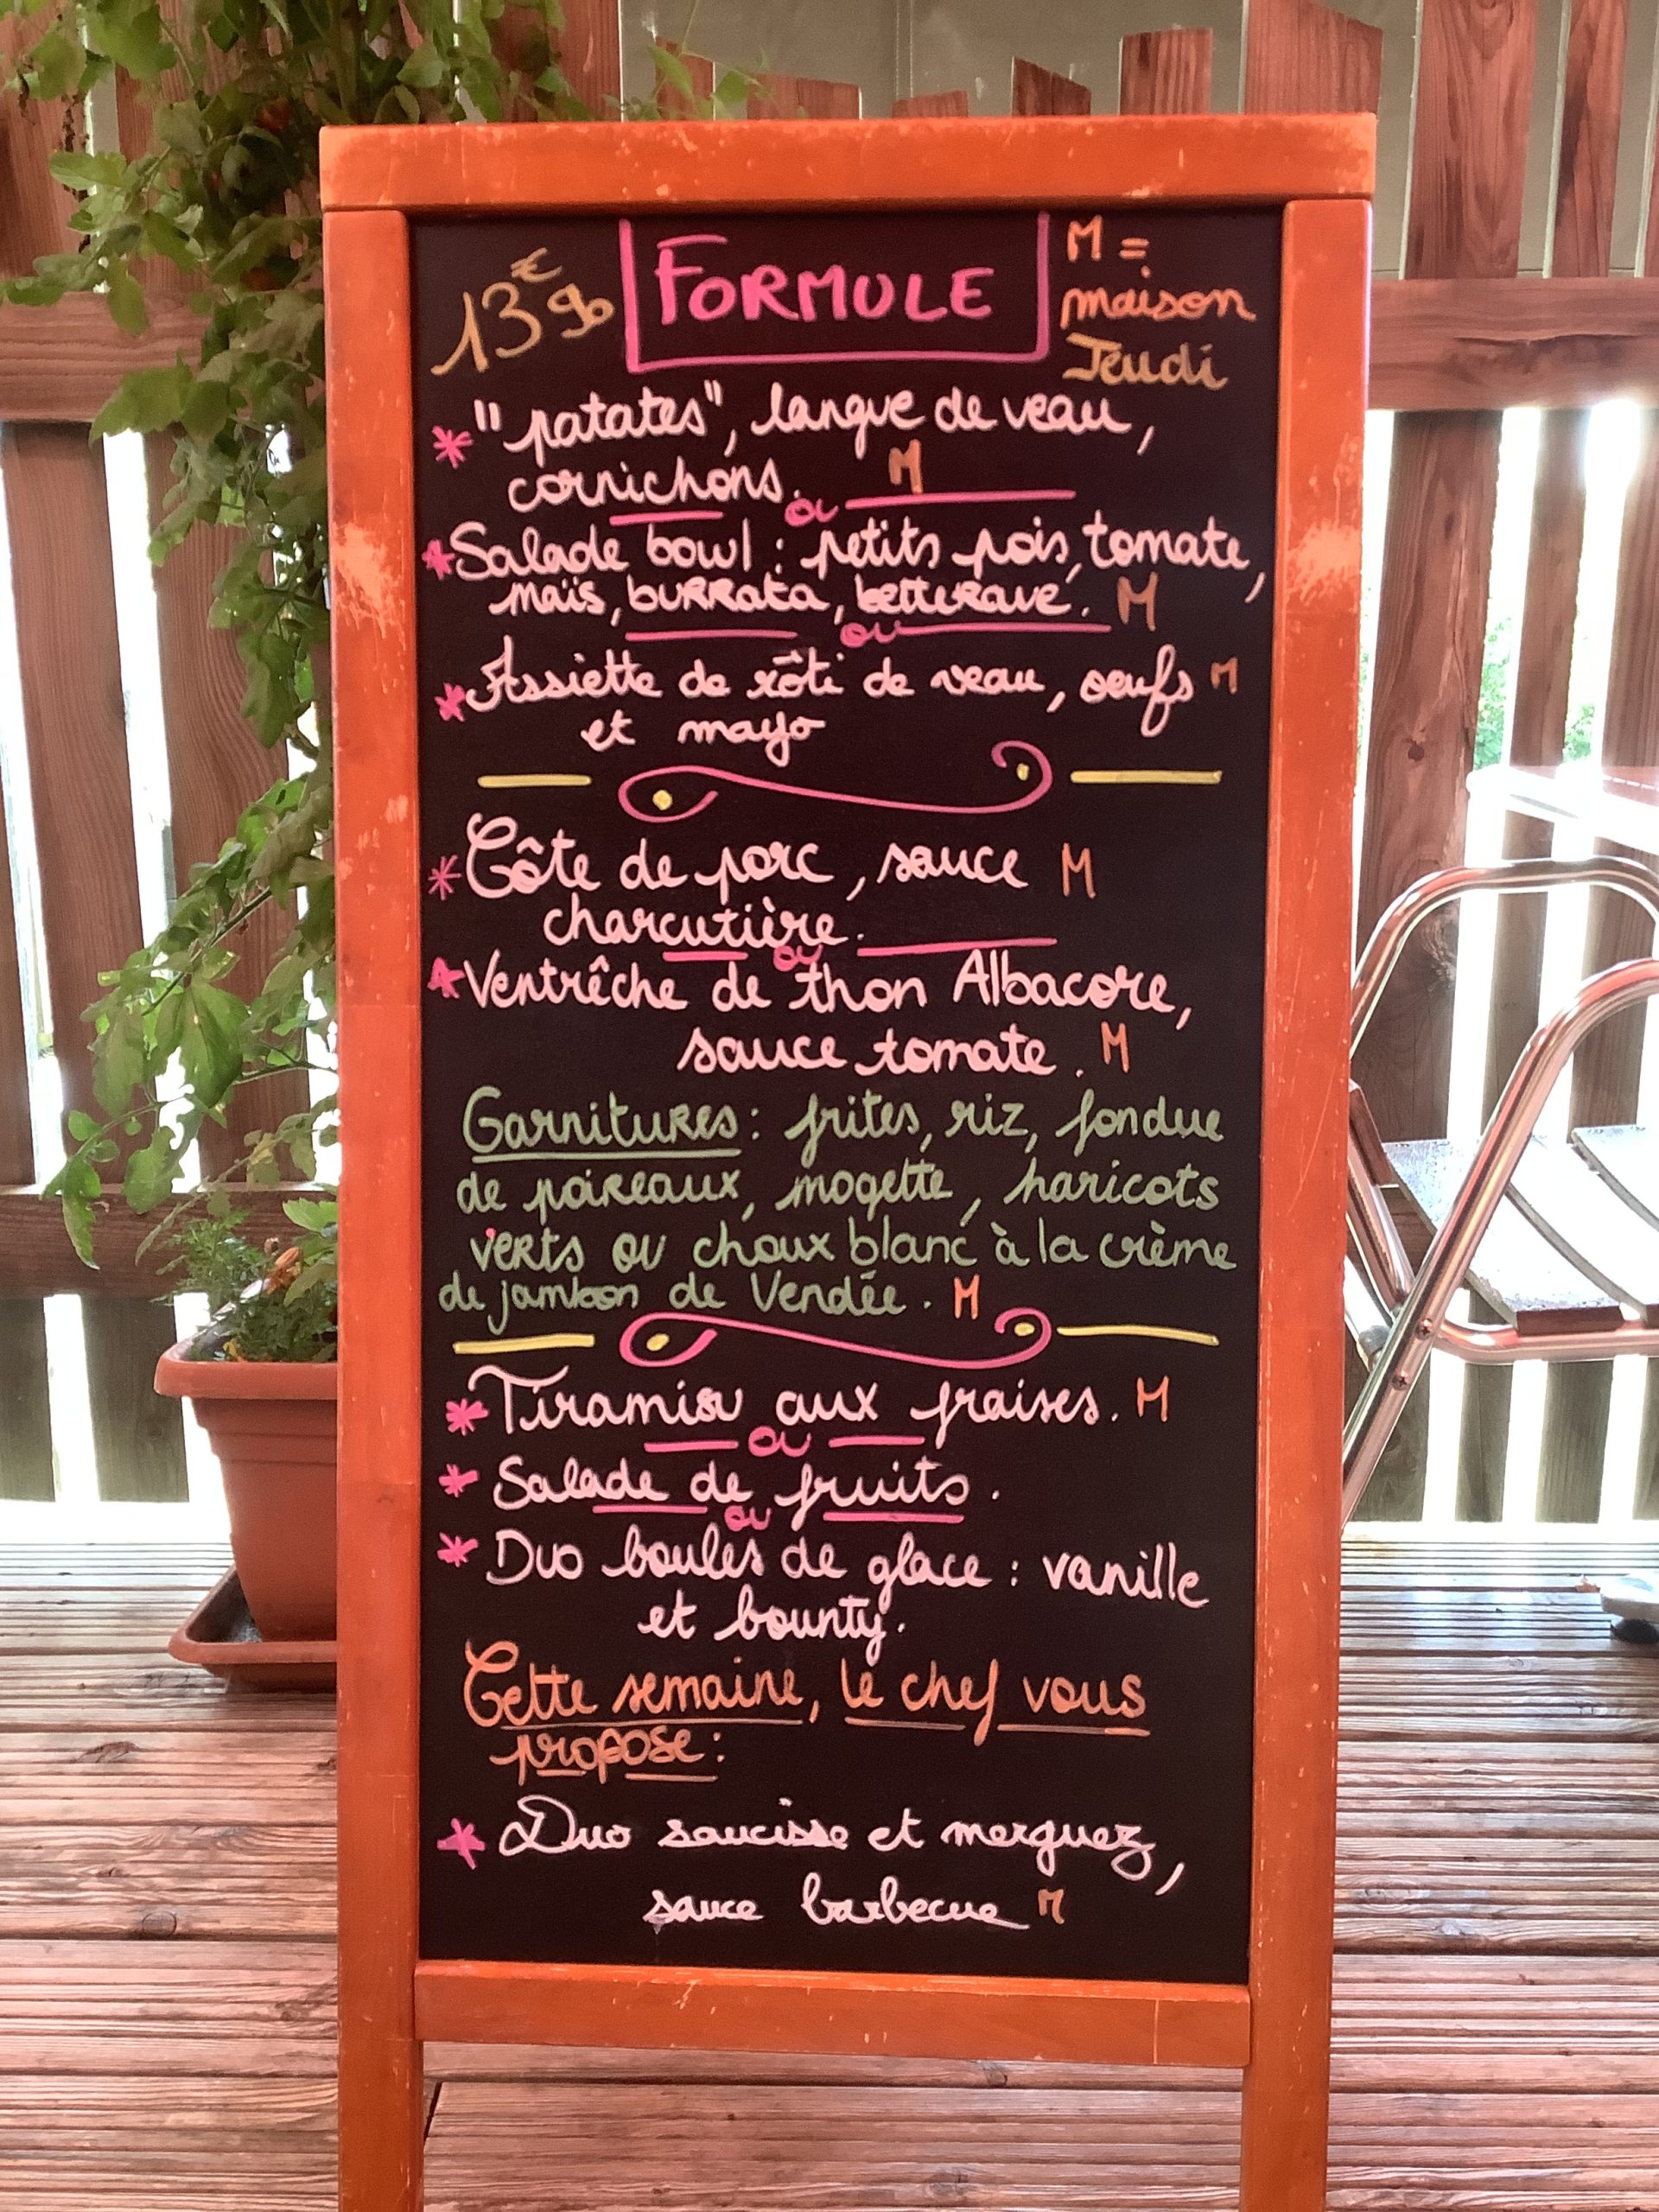 13€90 FORMULE M =
maison
Jeudi
* "patates", langue de veau,
cornichons. M
ou
* Salade bowl : petits pois, tomate,
maïs, burrata, betterave. M
ou
* Assiette de rôti de veau, oeufs M
et mayo
* Côte de porc, sauce M
charcutière.
ou
* Ventrêche de thon Albacore,
sauce tomate. M
Garnitures : frites, riz, fondue
de poireaux, mogette, haricots
verts ou choux blanc à la crème
de jambon de Vendée. M
* Tiramisu aux fraises. M
ou
* Salade de fruits.
ou
* Duo boules de glace : vanille
et bounty.
Cette semaine, le chef vous
propose :
* Duo saucisse et merguez,
sauce barbecue M